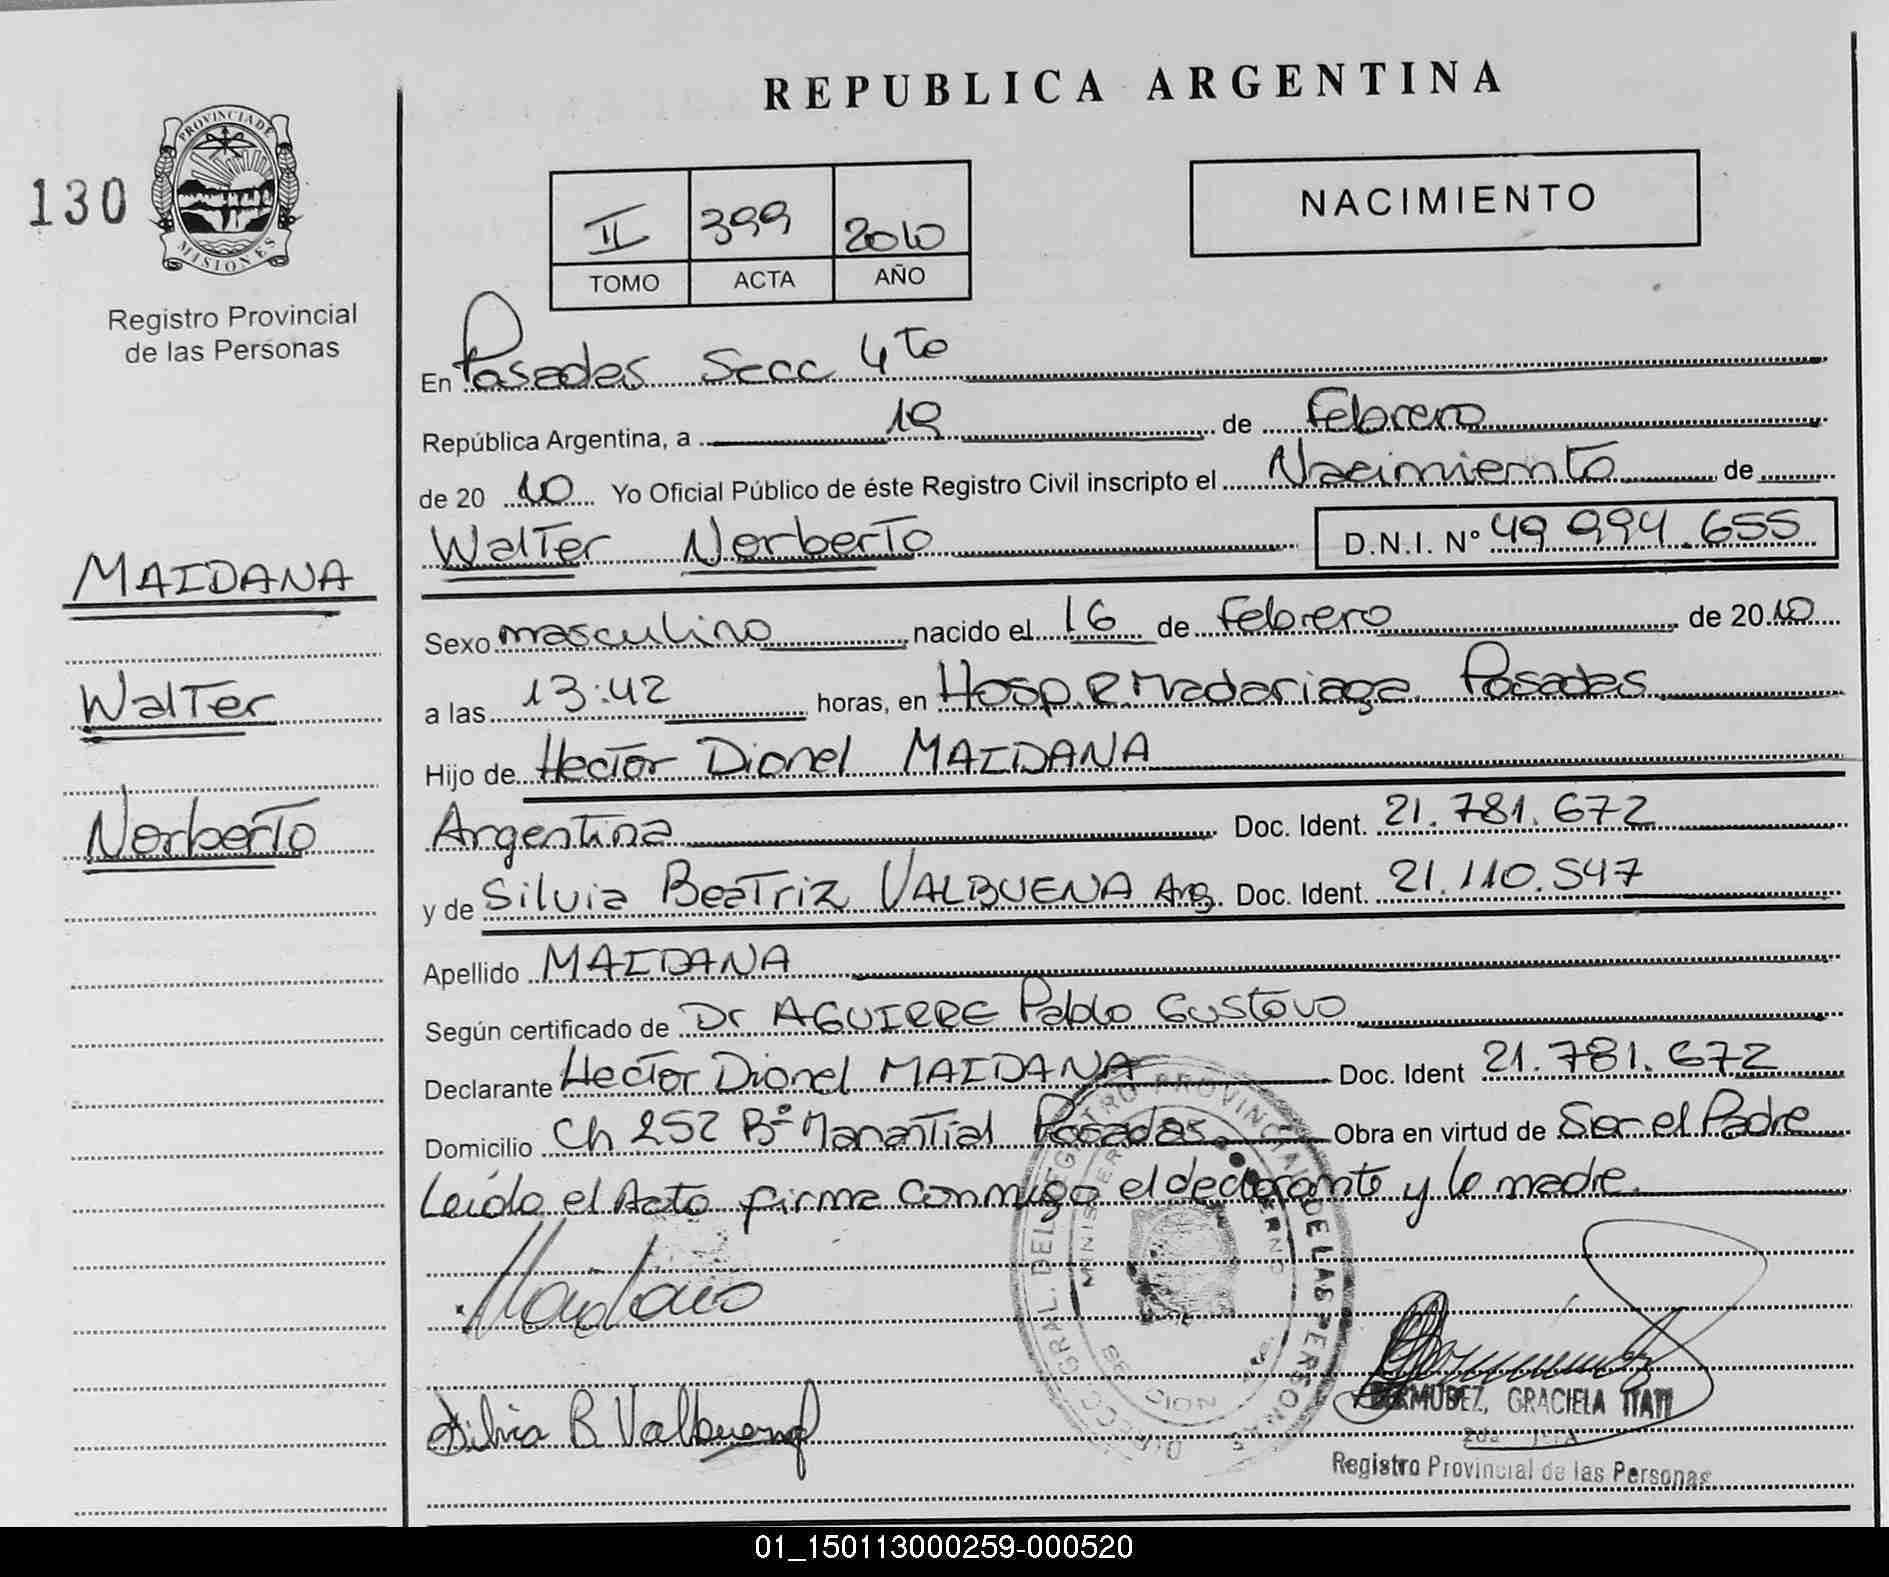 REPUBLICA ARGENTINA
130
PROVINCIA DE
MISIONES
Registro Provincial
de las Personas
II 399 2010
TOMO ACTA AÑO
NACIMIENTO
MAIDANA
Walter
Norberto
En Posadas Secc 4to
República Argentina, a 19 de Febrero
de 2010 Yo Oficial Público de éste Registro Civil inscripto el Nacimiento de
Walter Norberto D.N.I. Nº 49 994.655
Sexo masculino nacido el 16 de Febrero de 2010
a las 13:42 horas, en Hosp. R. Madariaga. Posadas
Hijo de Hector Dionel MAIDANA
Argentina Doc. Ident. 21.781.672
y de Silvia Beatriz VALBUENA Arg. Doc. Ident. 21.110.547
Apellido MAIDANA
Según certificado de Dr AGUIRRE Pablo Gustavo
Declarante Hector Dionel MAIDANA Doc. Ident 21.781.672
Domicilio Ch 252 Bº Manantial Posadas. Obra en virtud de Ser el Padre
Leído el Acto firma conmigo el declarante y la madre.
Maidana
Silvia B Valbuena
DIRECC. GRAL. DEL REGISTRO PROVINCIAL DE LAS PERSONAS
BERMUDEZ, GRACIELA ITATI
2da Jefa
Registro Provincial de las Personas
01_150113000259-000520